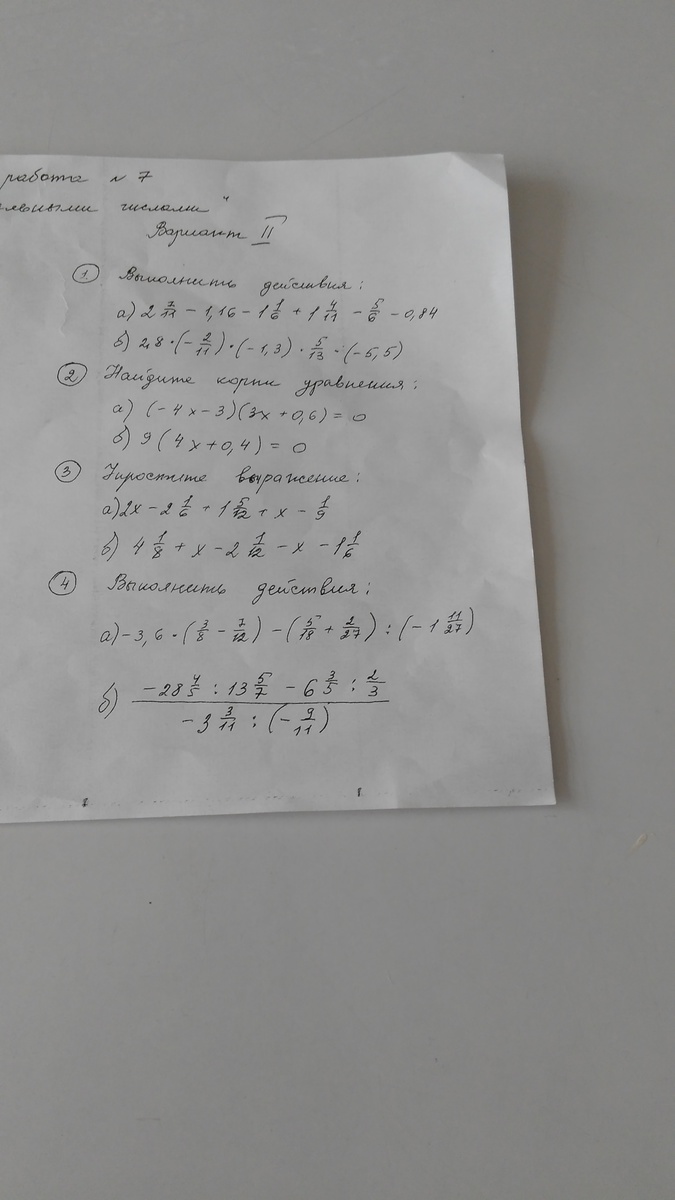 работа № 7
льными числами"
Вариант II
1. Выполнить действия:
а) 2 7/11 - 1,16 - 1 1/6 + 1 4/11 - 5/6 - 0,84
б) 2,8 · (-2/11) · (-1,3) · 5/13 · (-5,5)
2 Найдите корни уравнения:
а) (-4x-3)(3x+0,6) = 0
б) 9(4x+0,4) = 0
3 Упростите выражение:
а) 2x - 2 1/6 + 1 5/12 + x - 1/9
б) 4 1/8 + x - 2 1/12 - x - 1 1/6
4 Выполнить действия:
а) -3,6 · (3/8 - 7/12) - (5/18 + 2/27) : (-1 11/27)
б) (-28 4/5 : 13 5/7 - 6 3/5 : 2/3) / (-3 3/11 : (-9/11))